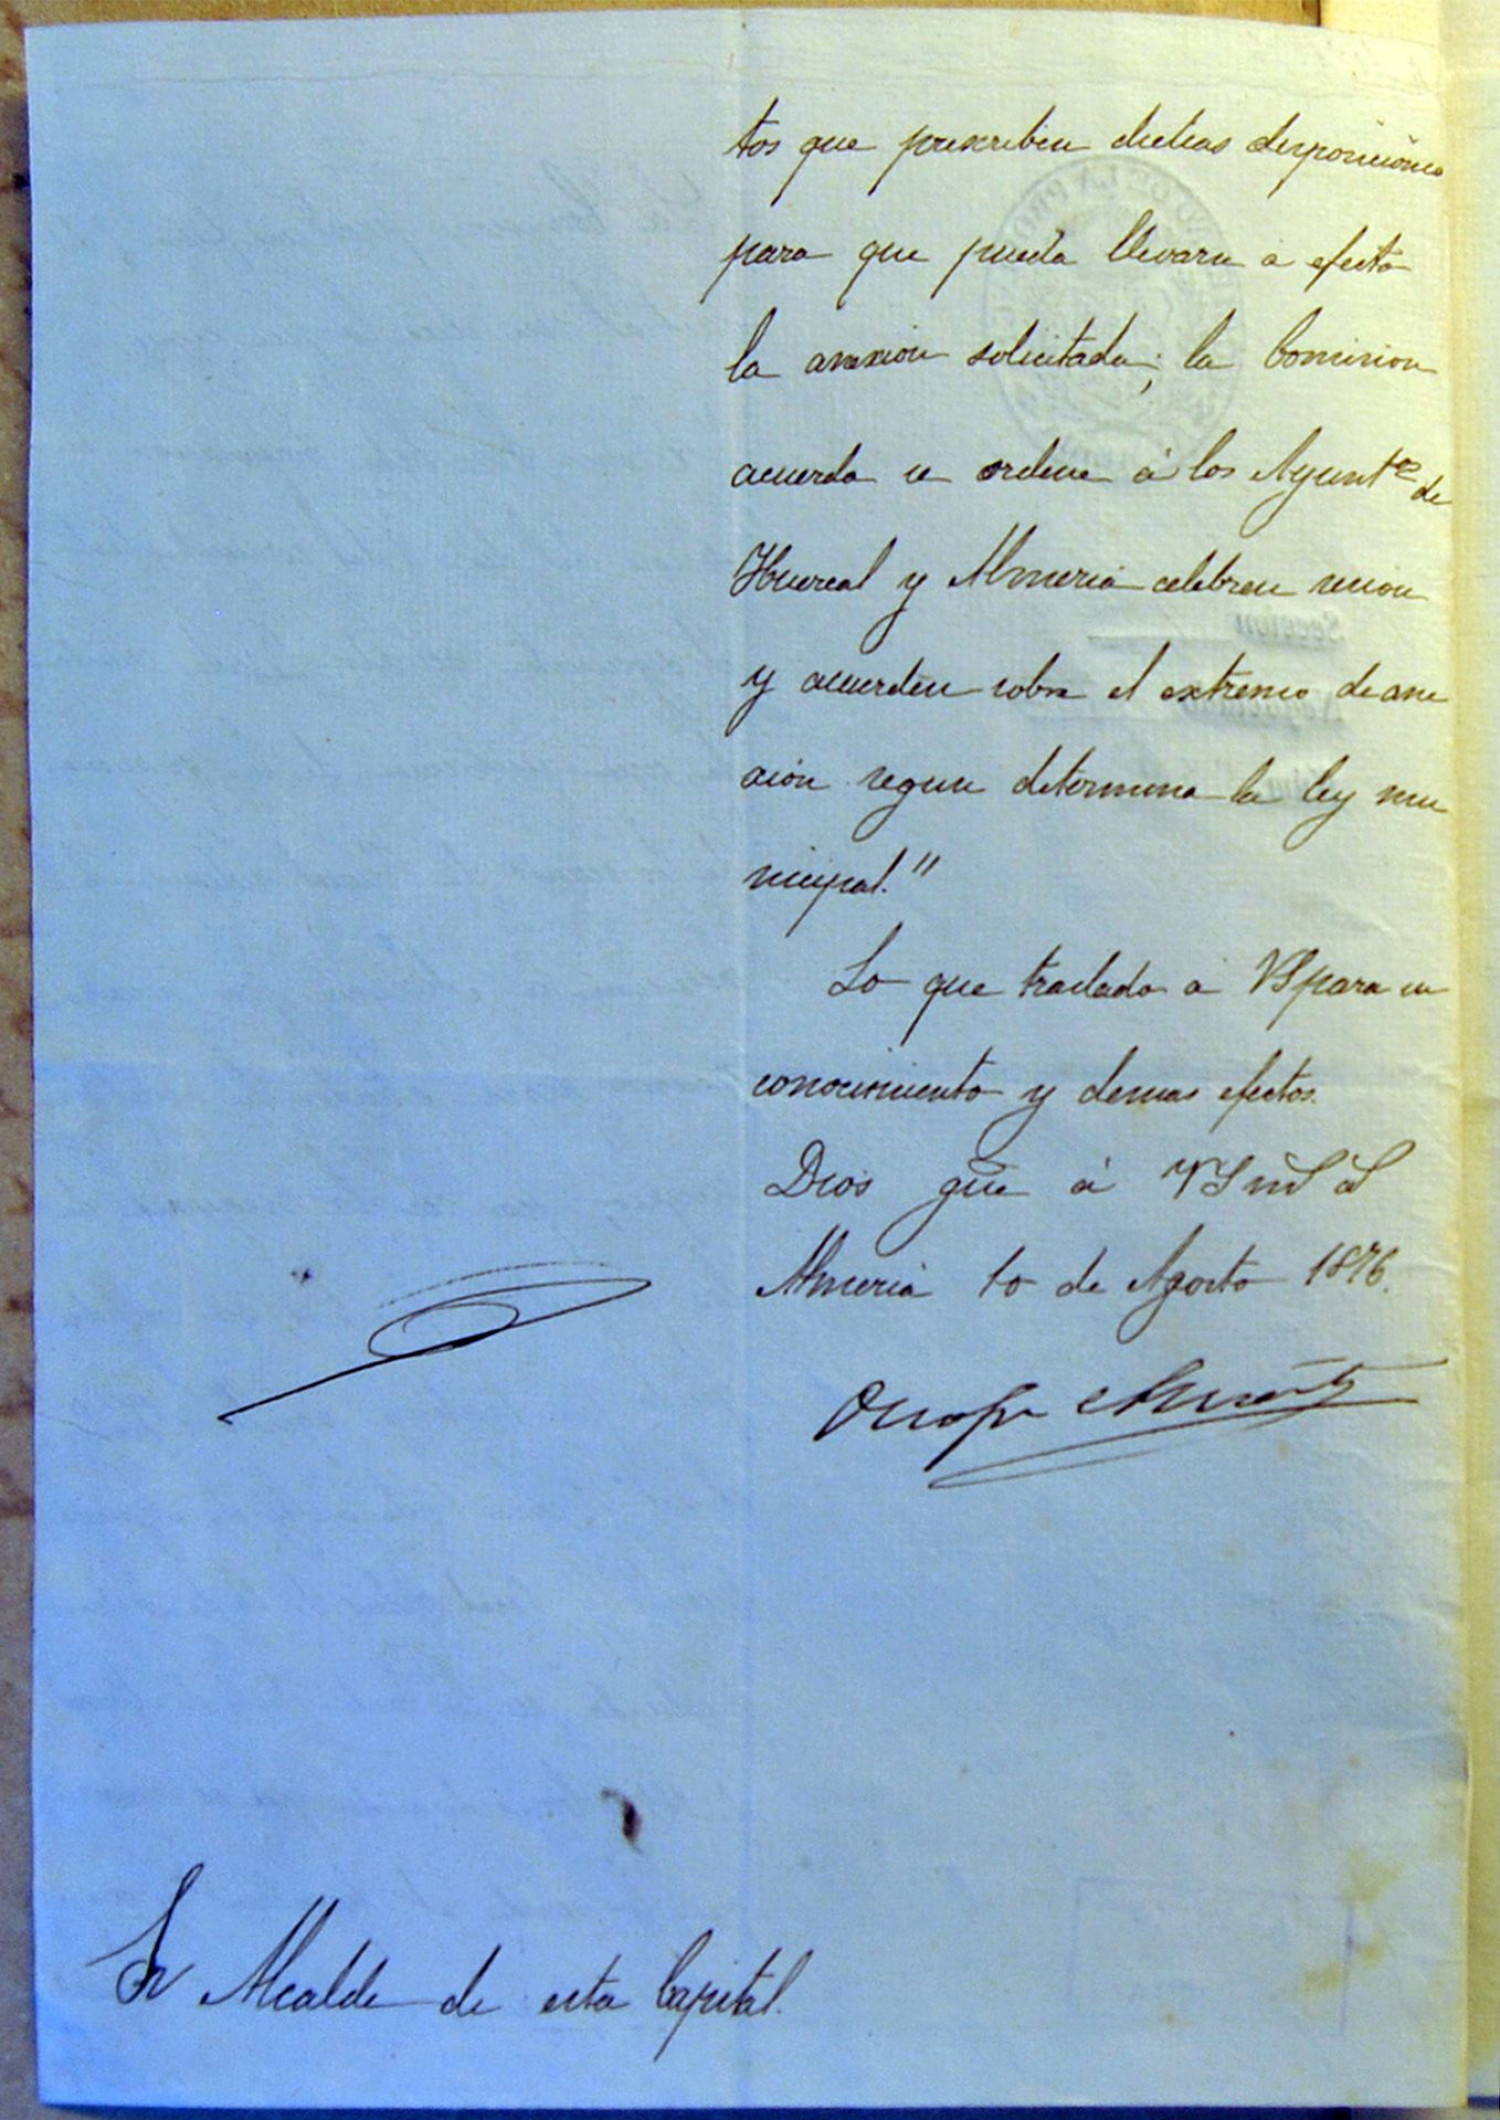 tos que prescriben dichas disposiciones
para que pueda llevarse á efecto
la anexion solicitada; la Comision
acuerda se ordene á los Ayunt.os de
Huercal y Almeria celebren sesion
y acuerden sobre el extremo de ane
xión segun determina la ley mu
nicipal."
Lo que traslado a VS para su
conocimiento y demas efectos.
Dios gue á VS ms as
Almeria 10 de Agosto 1876.
Onofre Amat
Sr Alcalde de esta Capital.